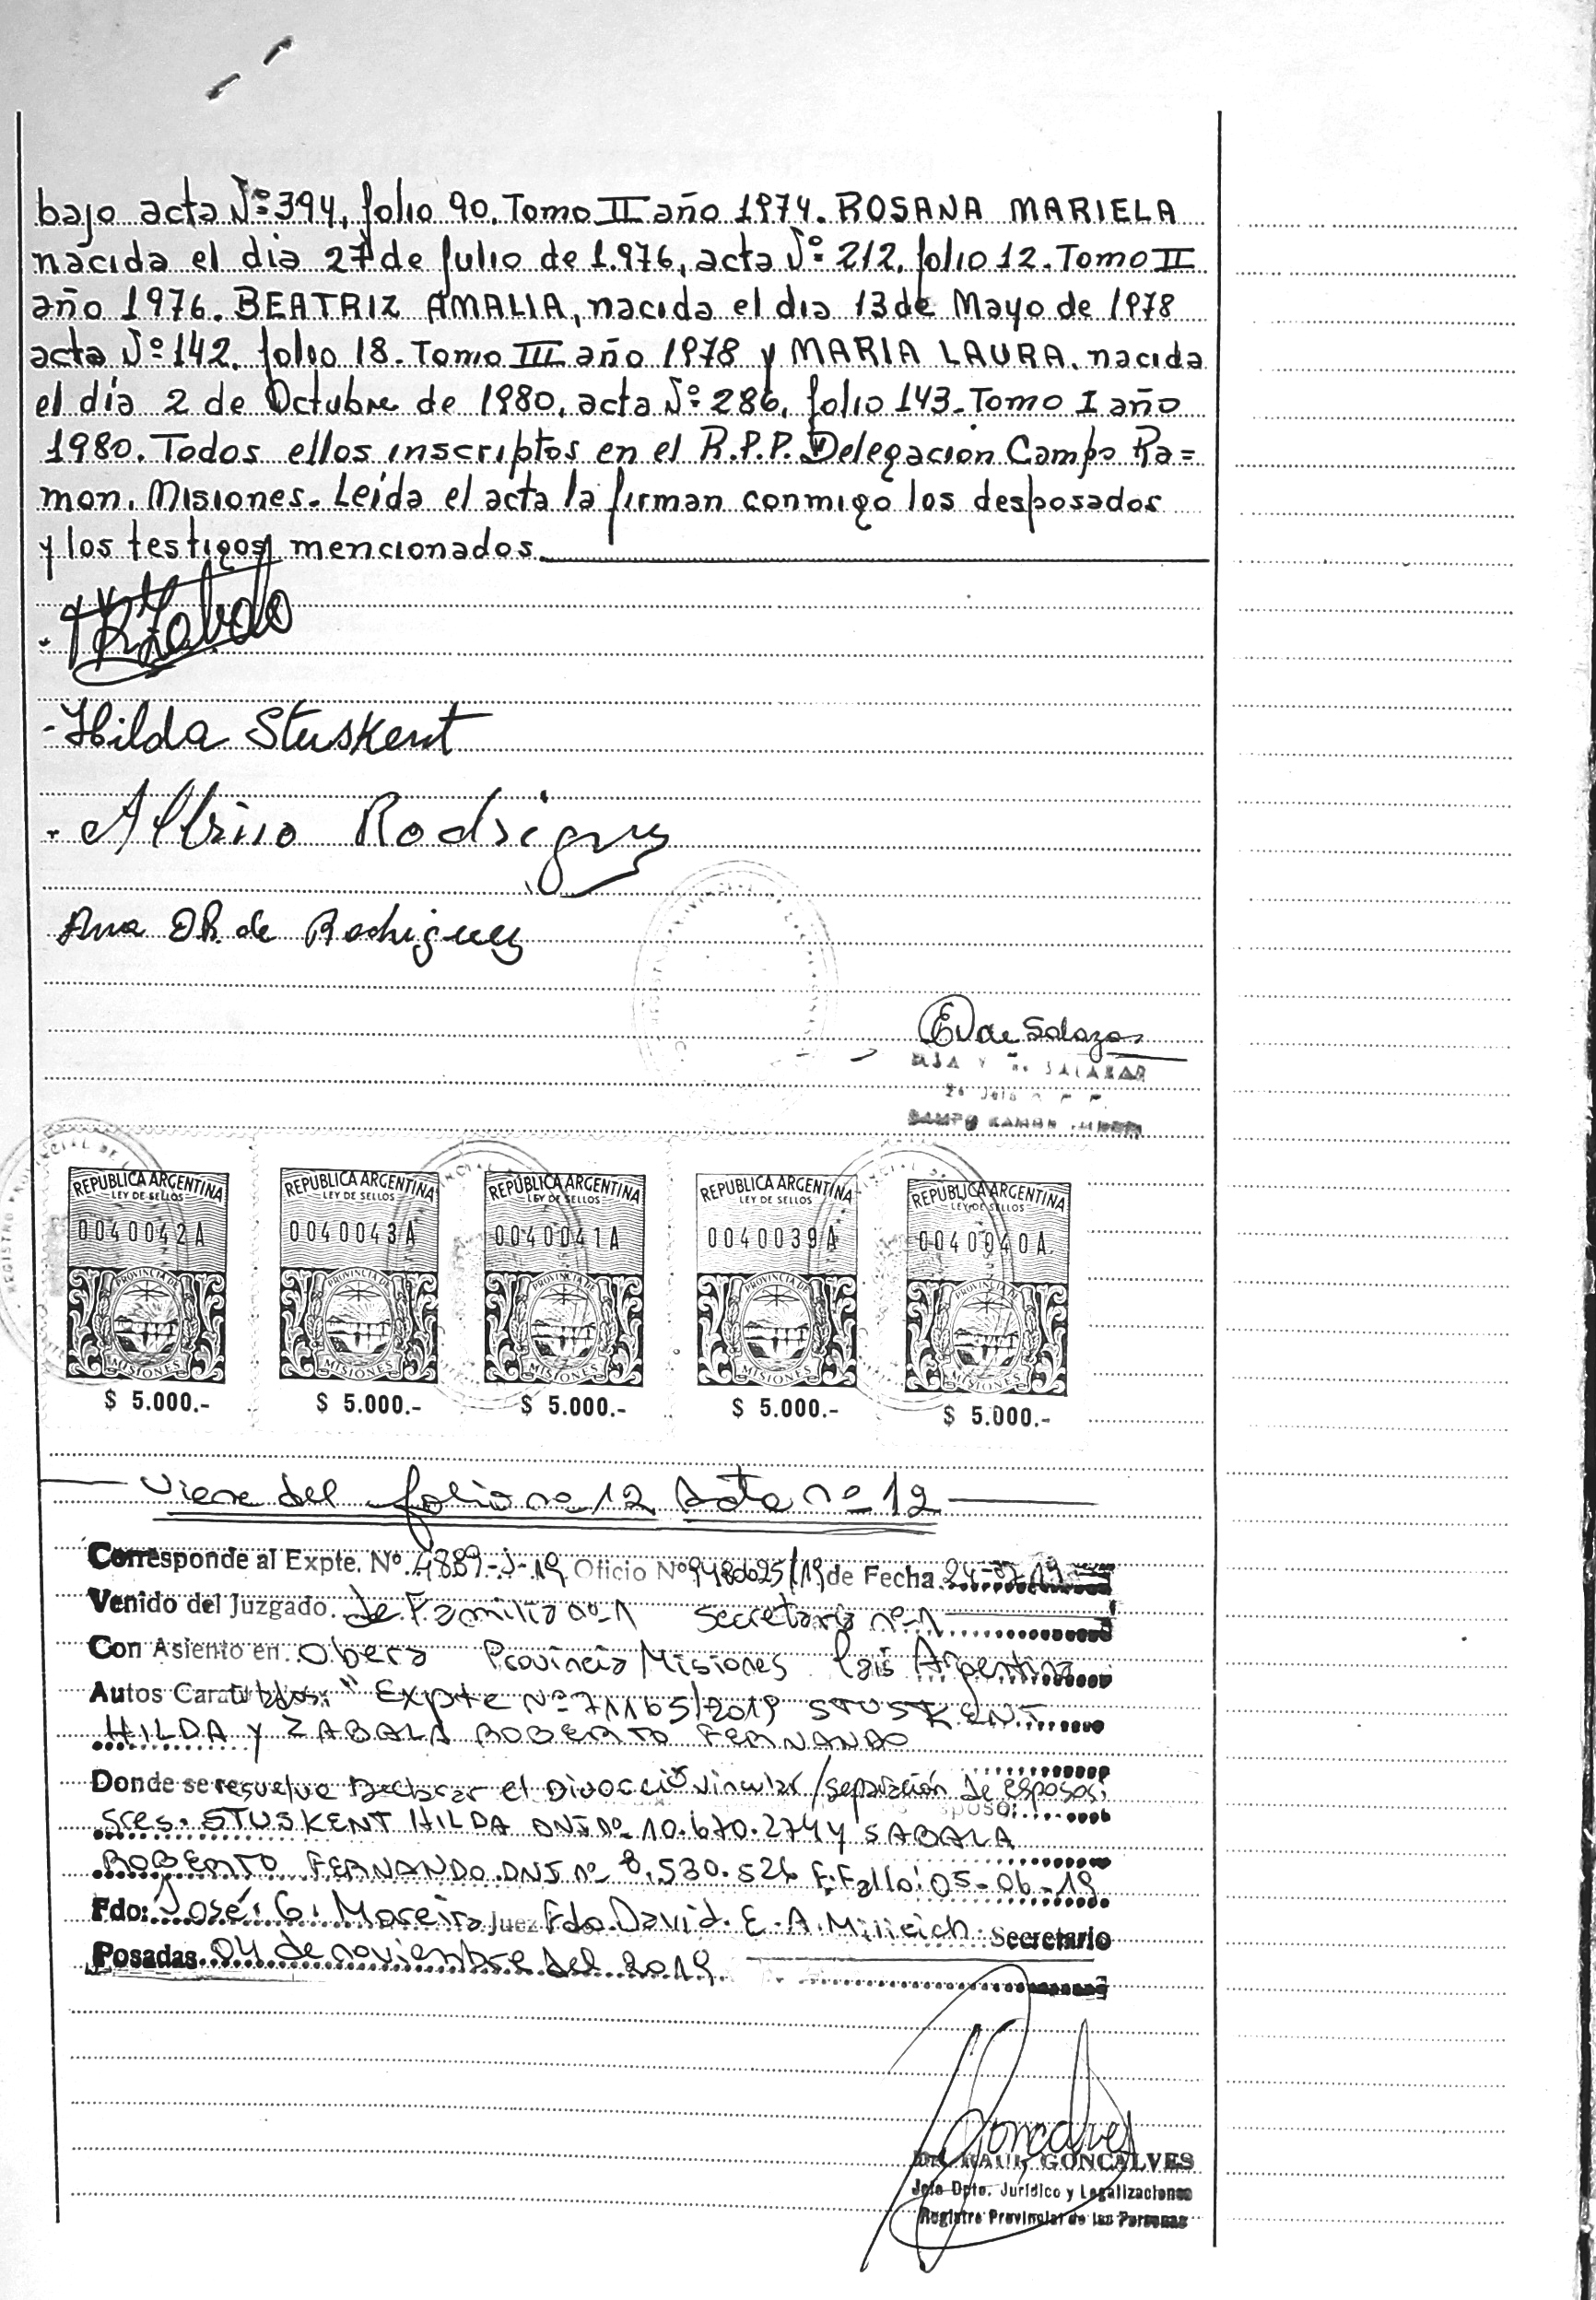 bajo acta Nº 394, folio 90. Tomo II año 1974. ROSANA MARIELA
nacida el dia 27 de Julio de 1.976, acta Nº 212, folio 12. Tomo II
año 1976. BEATRIZ AMALIA, nacida el dia 13 de Mayo de 1978
acta Nº 142, folio 18. Tomo III año 1978 y MARIA LAURA, nacida
el día 2 de Octubre de 1980, acta Nº 286, folio 143. Tomo I año
1980. Todos ellos inscriptos en el R.P.P. Delegación Campo Ra=
mon, Misiones. Leida el acta la firman conmigo los desposados
y los testigos mencionados
- Hilda Stuskent
Rodriguez
Ana de Rodriguez
E V de Salazar
SALAZAR
REPUBLICA ARGENTINA
LEY DE SELLOS
0040042A
PROVINCIA DE
MISIONES
$ 5.000.-
REPUBLICA ARGENTINA
LEY DE SELLOS
0040043A
PROVINCIA DE
MISIONES
$ 5.000.-
REPUBLICA ARGENTINA
LEY DE SELLOS
0040041A
PROVINCIA DE
MISIONES
$ 5.000.-
REPUBLICA ARGENTINA
LEY DE SELLOS
0040039A
PROVINCIA DE
MISIONES
$ 5.000.-
REPUBLICA ARGENTINA
LEY DE SELLOS
0040040A
PROVINCIA DE
MISIONES
$ 5.000.-
Viene del folio nº 12 Acta nº 12
Corresponde al Expte. Nº 4889-J-19 Oficio Nº de Fecha
Venido del Juzgado de Familia nº-1 Secretaría nº-1
Con Asiento en Obera Provincia Misiones País Argentina
Autos Caratulados: "Expte Nº 71165/2019 STUSKENT
HILDA Y ZABALA ROBERTO FERNANDO
Donde se resuelve Declarar el Divorcio vincular/separación de esposos:
Sres. STUSKENT HILDA DNI nº 10.670.274 y SABALA
ROBERTO FERNANDO DNI nº 8.530.526 F. Fallo: 05-06-19
Fdo: José G. Moreira Juez Fdo. David. E. A. Secretario
Posadas 04 de noviembre del 2019
GONCALVES
Jefe Dpto. Jurídico y Legalizaciones
Registro Provincial de las Personas